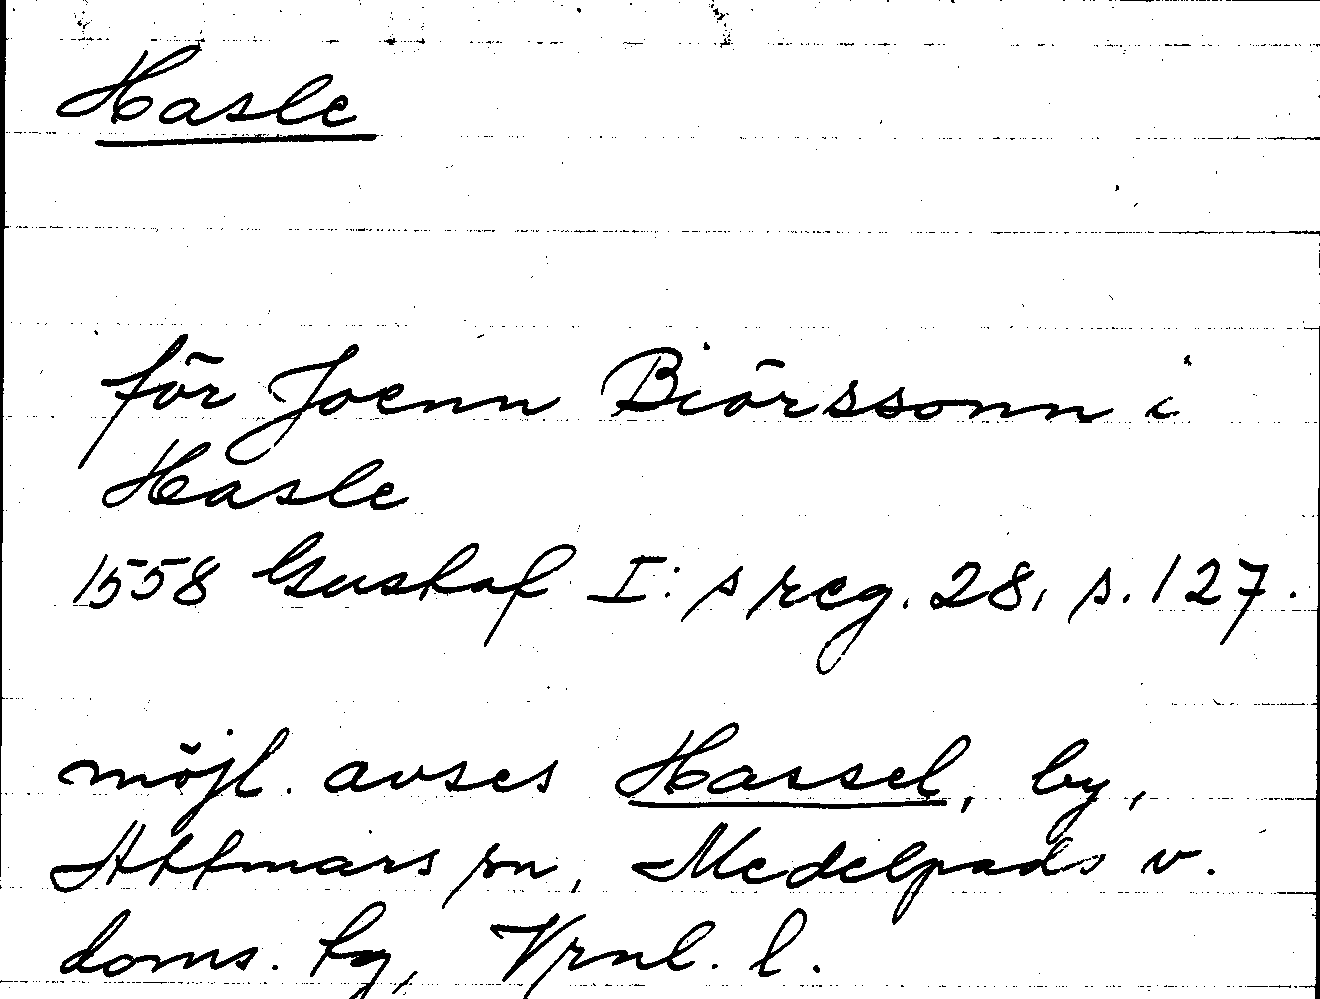 Hasle
för Joenn Biörssonn i
Hasle
1558 Gustaf I: s reg. 28, s. 127.
möjl. avses Hassel, by,
Attmars sn, Medelpads v.
doms. tg, Vrnl. l.